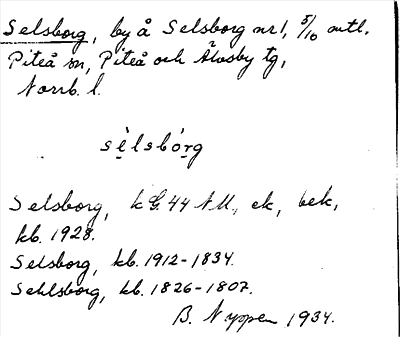 Selsborg, by å Selsborg nr 1, 5/10 mtl.
Piteå sn, Piteå och Älvsby tg,
Norrb. l.
sèlsbórg
Selsborg, k G. 44 N.U., ek, bek,
kb. 1928.
Selsborg, kb. 1912-1834.
Sehlsborg, kb. 1826-1807.
B. Nyppen 1934.